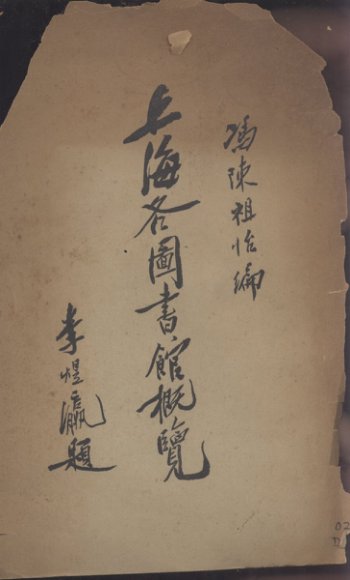 馮陳祖怡編
上海各圖書館概覽
李煜瀛題
02